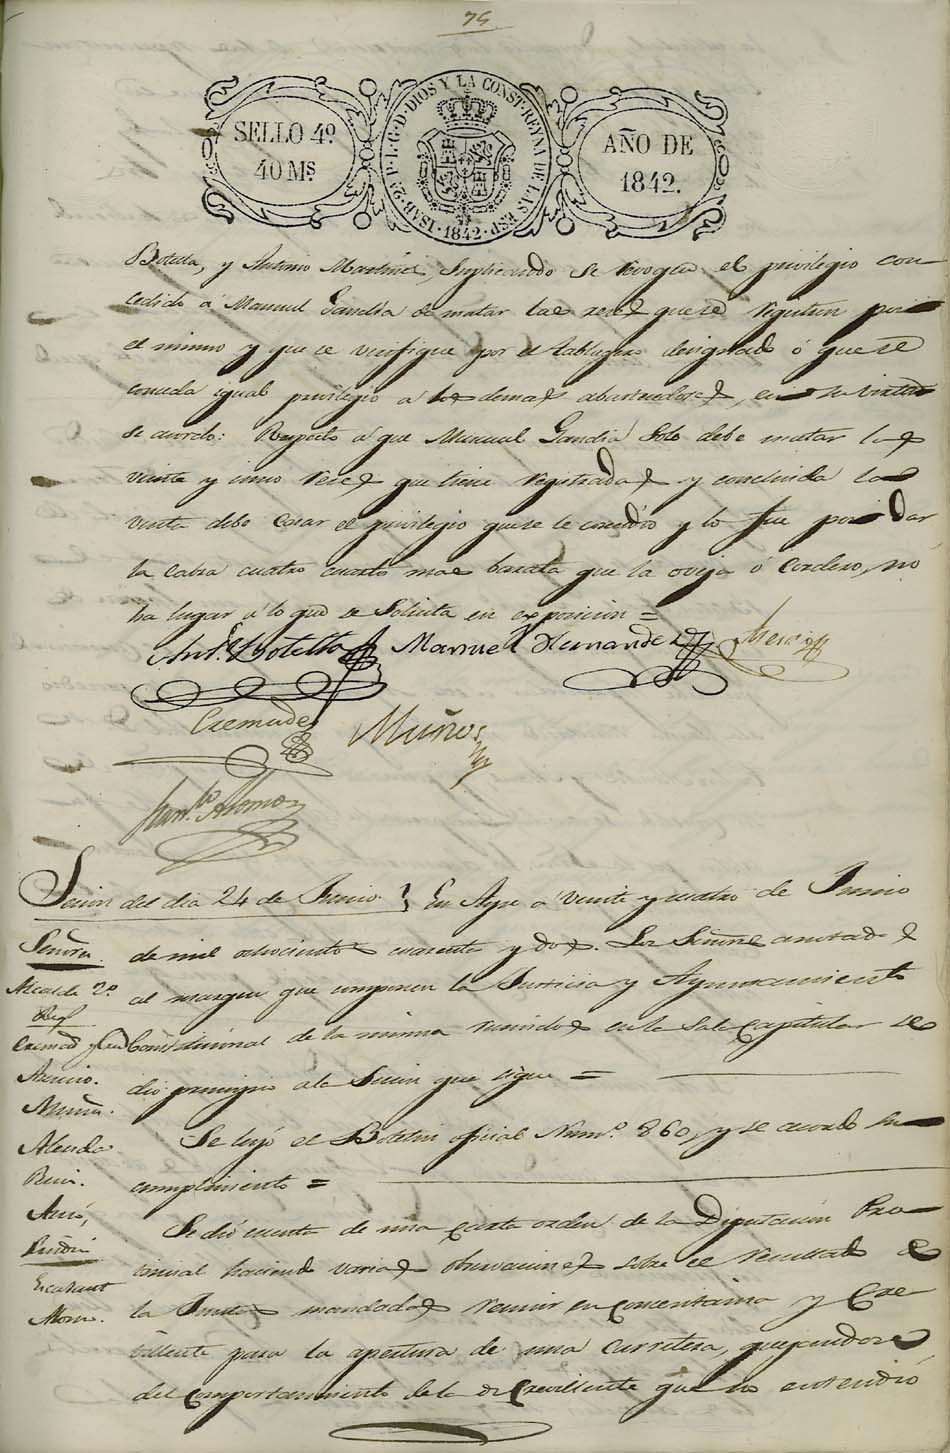 75
SELLO 4º.
40 Mˢ.
ISAB. 2ª P. L. G. D. DIOS Y LA CONST. REYNA DE LAS ESP. 1842
AÑO DE
1842.
Botella, y Antonio Martinez, Suplicando se revoque el privilegio con
cedido á Manuel Gandia de matar las reces que se registren por
el mismo y que se verifique por el tablagero designado ó que se
conceda igual privilegio á los demas abastecedores, en su virtud
se acordo: Respecto á que Manuel Gandia solo debe matar las
veinte y cinco reces que tiene registradas y concluida la
venta debe cesar el privilegio que se le concedio y lo fue por dar
la cabra cuatro cuartos mas barata que la oveja ó Cordero, no
ha lugar á lo que se Solicita en exposicion =
Antº. Botella Manuel Hernandez
Cremades Muños
Franco. Alonso
Sesion del dia 24 de Junio } En Aspe á veinte y cuatro de Junio
Señores. de mil ochocientos cuarenta y dos. Los Señores anotados
Alcalde 2º. al margen que componen la Justicia y Ayuntamiento
Reg
Cremad Constitucional de la misma reunidos en la Sala Capitular se
Asencio. dio principio a la Sesion que sigue =
Muños. Se leyó el Boletin oficial Numº. 860, y se acordo su
Alenda
cumplimiento =
Se dió cuenta de una carta orden de la Diputacion Pro-
vincial haciendo varias observaciones sobre el resultado de
la Juntas mandadas reunir en Concentaina y Cre
villente para la apertura de una Carretera, quejandose
del comportamiento de la de Crevillente que no entendió